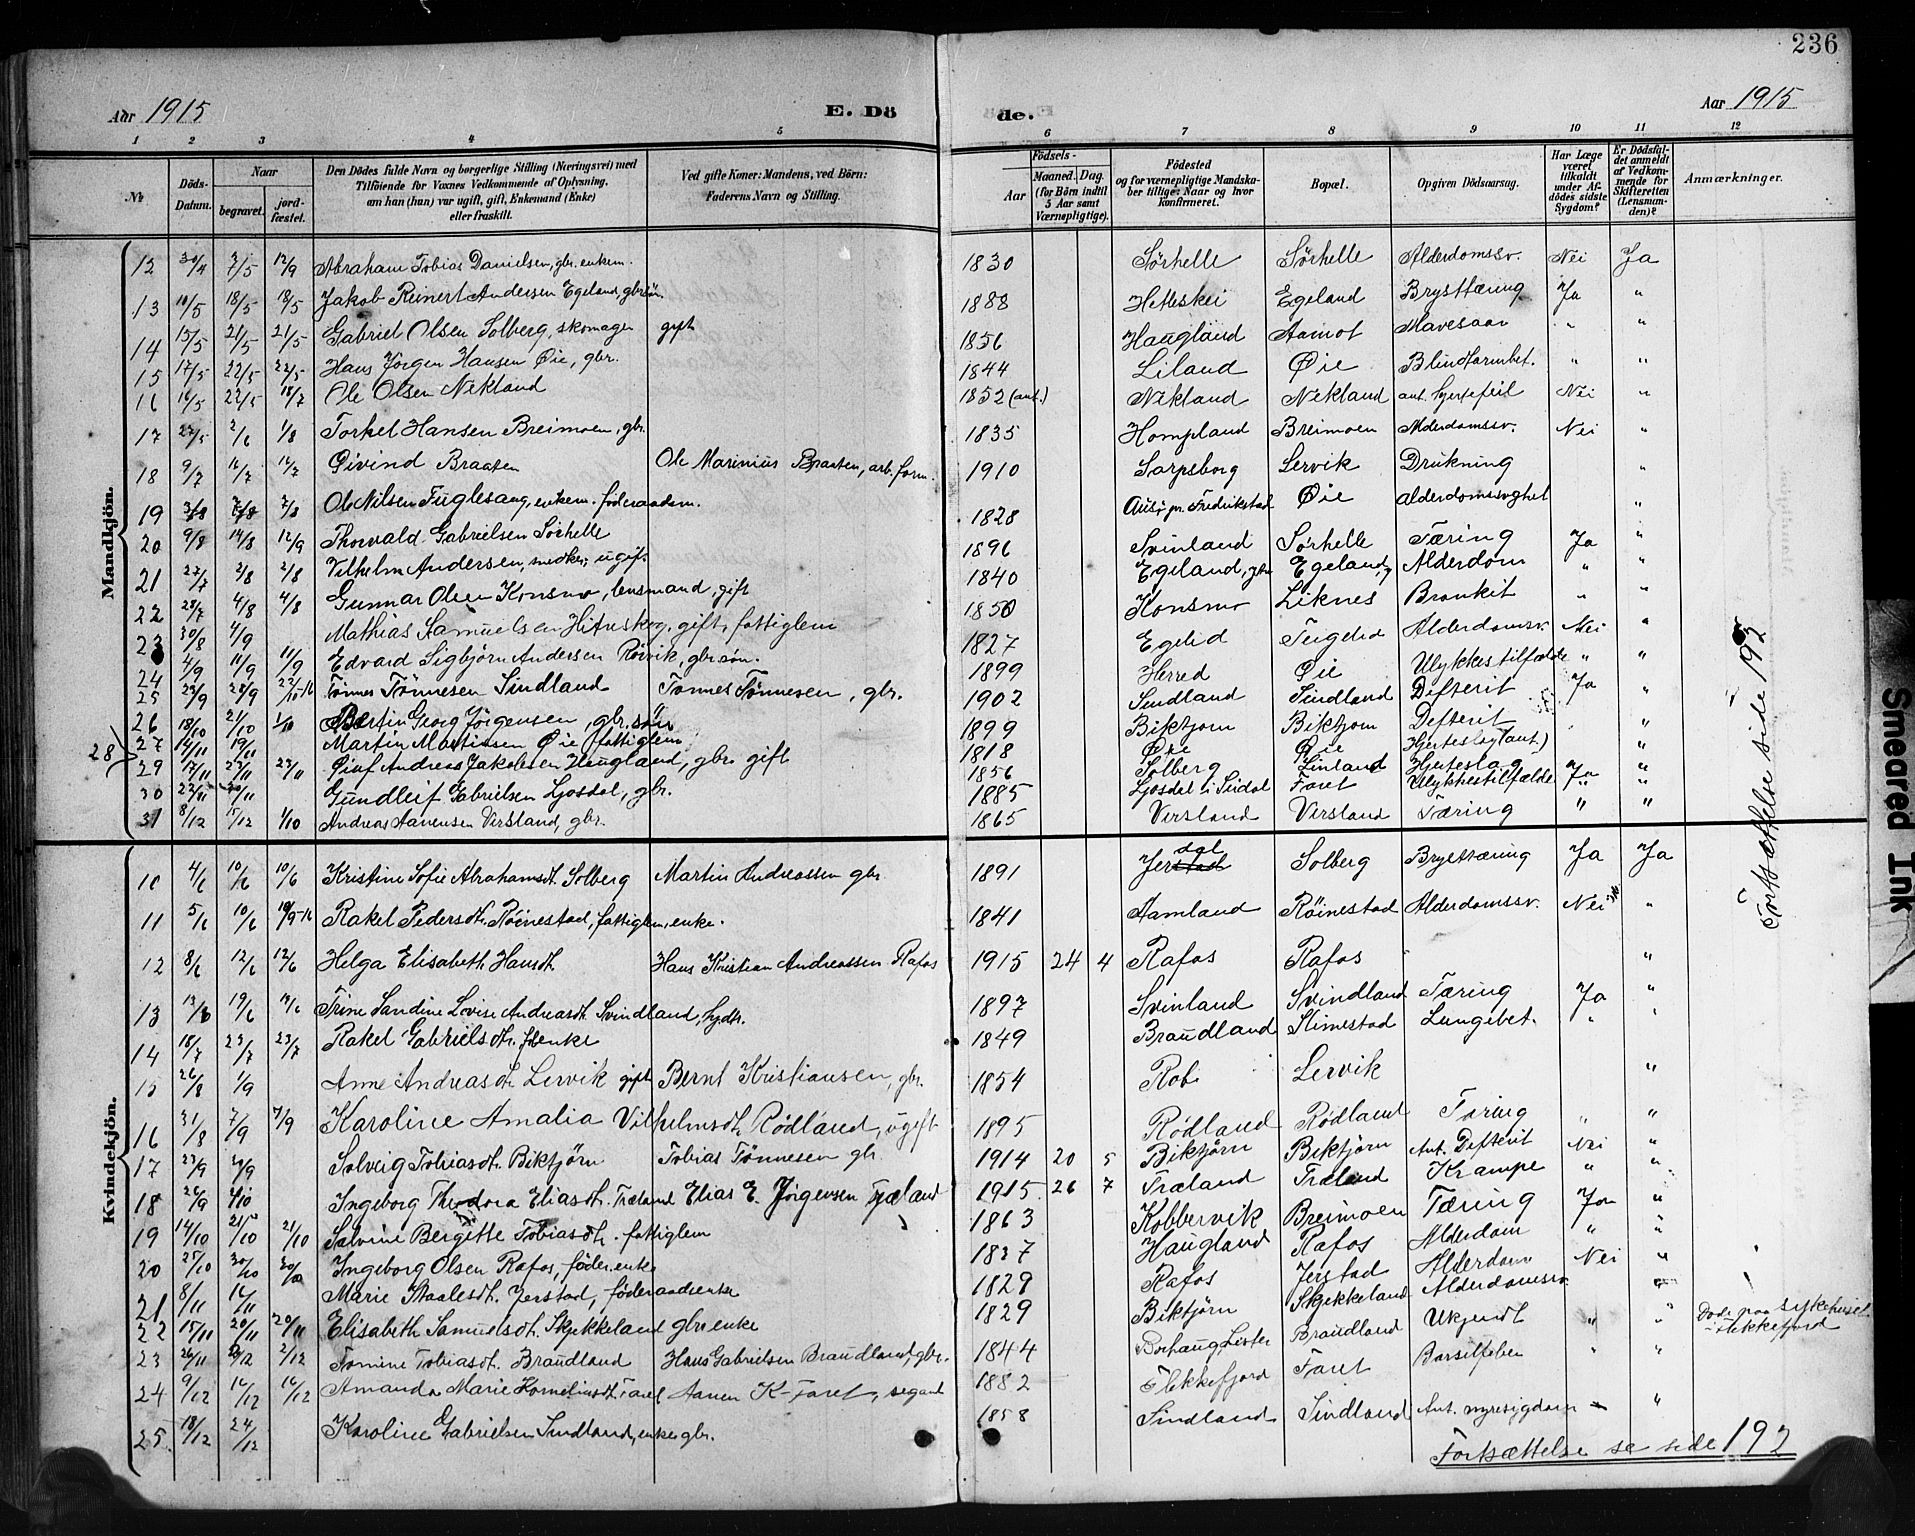 236
Aar 1915 E. Dö de. Aar 1915
1 2 3 4 5 6 7 8 9 10 11 12
№
Döds-Datum.
Naar
begravet.
jord-fæstet.
Den Dödes fulde Navn og borgerlige Stilling (Næringsvei) med
Tilföiende for Voxnes Vedkommende af Oplysning,
om han (hun) var ugift, gift, Enkemand (Enke)
eller fraskilt.
Ved gifte Koner: Mandens, ved Börn:
Faderens Navn og Stilling.
Födsels-
Aar
Maaned. Dag.
(for Börn indtil
5 Aar samt
Værnepligtige).
Födested
og for værnepligtige Mandska-
ber tillige: Naar og hvor
konfirmeret.
Bopæl.
Opgiven Dödsaarsag.
Har Læge
været
tilkaldt
under Af-
dödes sidste
Sygdom?
Er Dödsfal-
det anmeldt
af Vedkom-
mende for
Skifteretten
(Lensman-
den)?
Anmærkninger.
Mandkjön.
12 30/4 7/5 12/9 Abraham Tobias Danielsen, gbr. enkem. 1830 Sörhelle Sörhelle Alderdomssv. Nei Ja
13 10/5 18/5 18/5 Jakob Reinert Andersen Egeland, gbr.sön. 1888 Hitteskei Egeland Brysttæring Ja "
14 15/5 21/5 21/5 Gabriel Olsen Solberg, skomager gift 1856 Haugland Aamot Mavesaar " "
15 17/5 22/5 22/5 Hans Jörgen Hansen Øie, gbr. 1844 Liland Øie Blindtarmbet. " "
16 16/5 22/5 18/7 Ole Olsen Nekland 1852 (ant.) Nekland Nekland ant. hjertefeil Nei "
17 27/5 2/6 1/8 Torkel Hansen Breimoen, gbr. 1835 Hompland Breimoen Alderdomssv. Nei "
18 9/7 16/7 16/7 Øivind Braaten Ole Marinius Braaten, arb. form. 1910 Sarpsborg Lervik Drukning "
19 3/8 7/8 7/8 Ole Nilsen Fuglesang, enkem. föderaadsm. 1828 pr. Fredrikstad Øie alderdomssvghet "
20 9/8 14/8 12/9 Thorvald Gabrielsen Sörhelle 1896 Svinland Sörhelle Tæring Ja "
21 27/7 2/8 2/8 Vilhelm Andersen, snedker, ugift 1840 Egeland, gbr Egeland Alderdom " "
22 28/7 4/8 4/8 Gunnar Olsen Konsmo, lensmand, gift 1850 Konsmo Liknes Bronkit " "
23 30/8 4/9 Mathias Samuelsen Hitreskog, gift, fattiglem 1827 Egelid Alderdomsv. Nei "
24 4/9 11/9 11/9 Edvard Sigbjörn Andersen Röivik, gbr.sön. 1899 Herred Øie Ulykkestilfælde " "
25 23/9 28/9 22/10-16 Tönnes Tönnesen Sindland Tönnes Tönnesen, gbr. 1902 Sindland Sindland Defterit Ja "
26 18/10 21/10 1/10 Bertin Georg Jörgensen, gbr. sön " 1899 Biktjorn Biktjom Defterit "
27 14/11 19/11 Martin Martinsen Øie fattiglem 1818 Øie Øie Hjerteslag (ant.) "
28
29 17/11 23/11 23/11 Oluf Andreas Jakobsen Haugland, gbr. gift 1856 Solberg Linland Hjerteslag Ja "
30 22/11 Gundleif Gabrielsen Ljosdal, gbr. 1885 Ljosdal i Sirdal Faret Ulykkestilfælde " "
31 8/12 15/12 1/10 Andreas Aanensen Virsland, gbr. 1865 Virsland Virsland Tæring " "
Fortsættelse side 192
Kvindekjön.
10 4/6 10/6 10/6 Kristine Sofie Abrahamsdt. Solberg Martin Andreassen gbr. 1891 Jerstad dal Solberg Brysttæring Ja Ja
11 5/6 10/6 10/9-16 Rakel Pedersdt. Röinestad, fattiglem, enke. 1841 Aamland Röinestad Alderdomssv. Nei "
12 8/6 12/6 12/6 Helga Elisabeth Hansdt. Hans Kristian Andreassen Rafos 1915 24 4 Rafos Rafos "
13 13/6 19/6 19/6 Trine Sandine Lovise Andreasdt. Svindland, sydr. 1897 Svinland Svindland Tæring Ja "
14 18/7 23/7 23/7 Rakel Gabrielsdt. enke 1849 Braudland Stimestad Lungebet. " "
15 26/8 1/9 Anne Andreasdt. Lervik gift Bernt Kristiansen, gbr. 1854 Rob Lervik "
16 31/8 7/9 7/9 Karoline Amalia Vilhelmsdt. Rödland, ugift 1895 Rödland Rödland Tæring " "
17 23/9 29/9 Solveig Tobiasdt. Biktjörn Tobias Tönnesen gbr. 1914 20 5 Biktjörn Biktjörn Ant. Defterit Nei "
18 26/9 4/10 Ingeborg Theodora Eliasdt. Træland Elias E. Jörgensen Træland 1915 26 7 Træland Træland Krampe " "
19 14/10 21/10 21/10 Salvine Bergitte Tobiasdt. fattiglem 1863 Kobbervik Breimoen Tæring Ja "
20 25/10 30/10 30/10 Ingeborg Olsen Rafos, föder.enke 1837 Haugland Rafos Alderdom " "
21 8/11 16/11 Marie Staalesdt. Jerstad, föderaadsenke 1829 Rafos Jerstad Alderdom Nei "
22 15/11 20/11 20/11 Elisabeth Samuelsdt. Skjekkeland gbr.enke 1829 Biktjörn Skjekkeland Alderdomssv. "
23 26/11 2/12 2/12 Tomine Tobiasdt. Braudland Hans Gabrielsen Braudland, gbr. 1844 Borhaug Lister Braudland Ukjendt " " Döde paa sykehuset i Flekkefjord
24 9/12 16/12 16/12 Amanda Marie Korneliusdt. Faret Aanen K. Faret, 1882 Flekkefjord Faret Barselfeber " "
25. 18/12 24/12 Karoline Gabrielsen Sindland, enke gbr. 1858 Sindland Sindland Ant. nyresygdom "
Fortsættelse se side 192
Smeared Ink